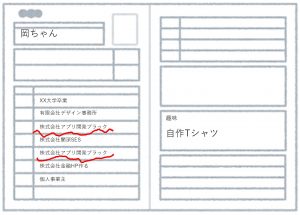 岡ちゃん
XX大学卒業
有限会社デザイン事務所
株式会社アプリ開発ブラック
株式会社常駐SES
株式会社アプリ開発ブラック
株式会社金融HP作る
個人事業主
趣味
自作Tシャツ